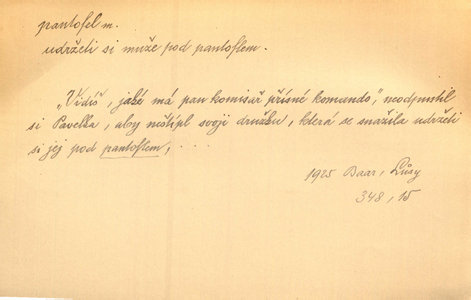 pantofel m.
udržeti si muže pod pantoflem.
„Vidíš, jaké má pan komisař přísné komando", neodpustil
si Pavelka, aby neštípl svoji družku, která se snažila udržeti
si jej pod pantoflem, . . .
1925 Baar, Lůsy
348, 15